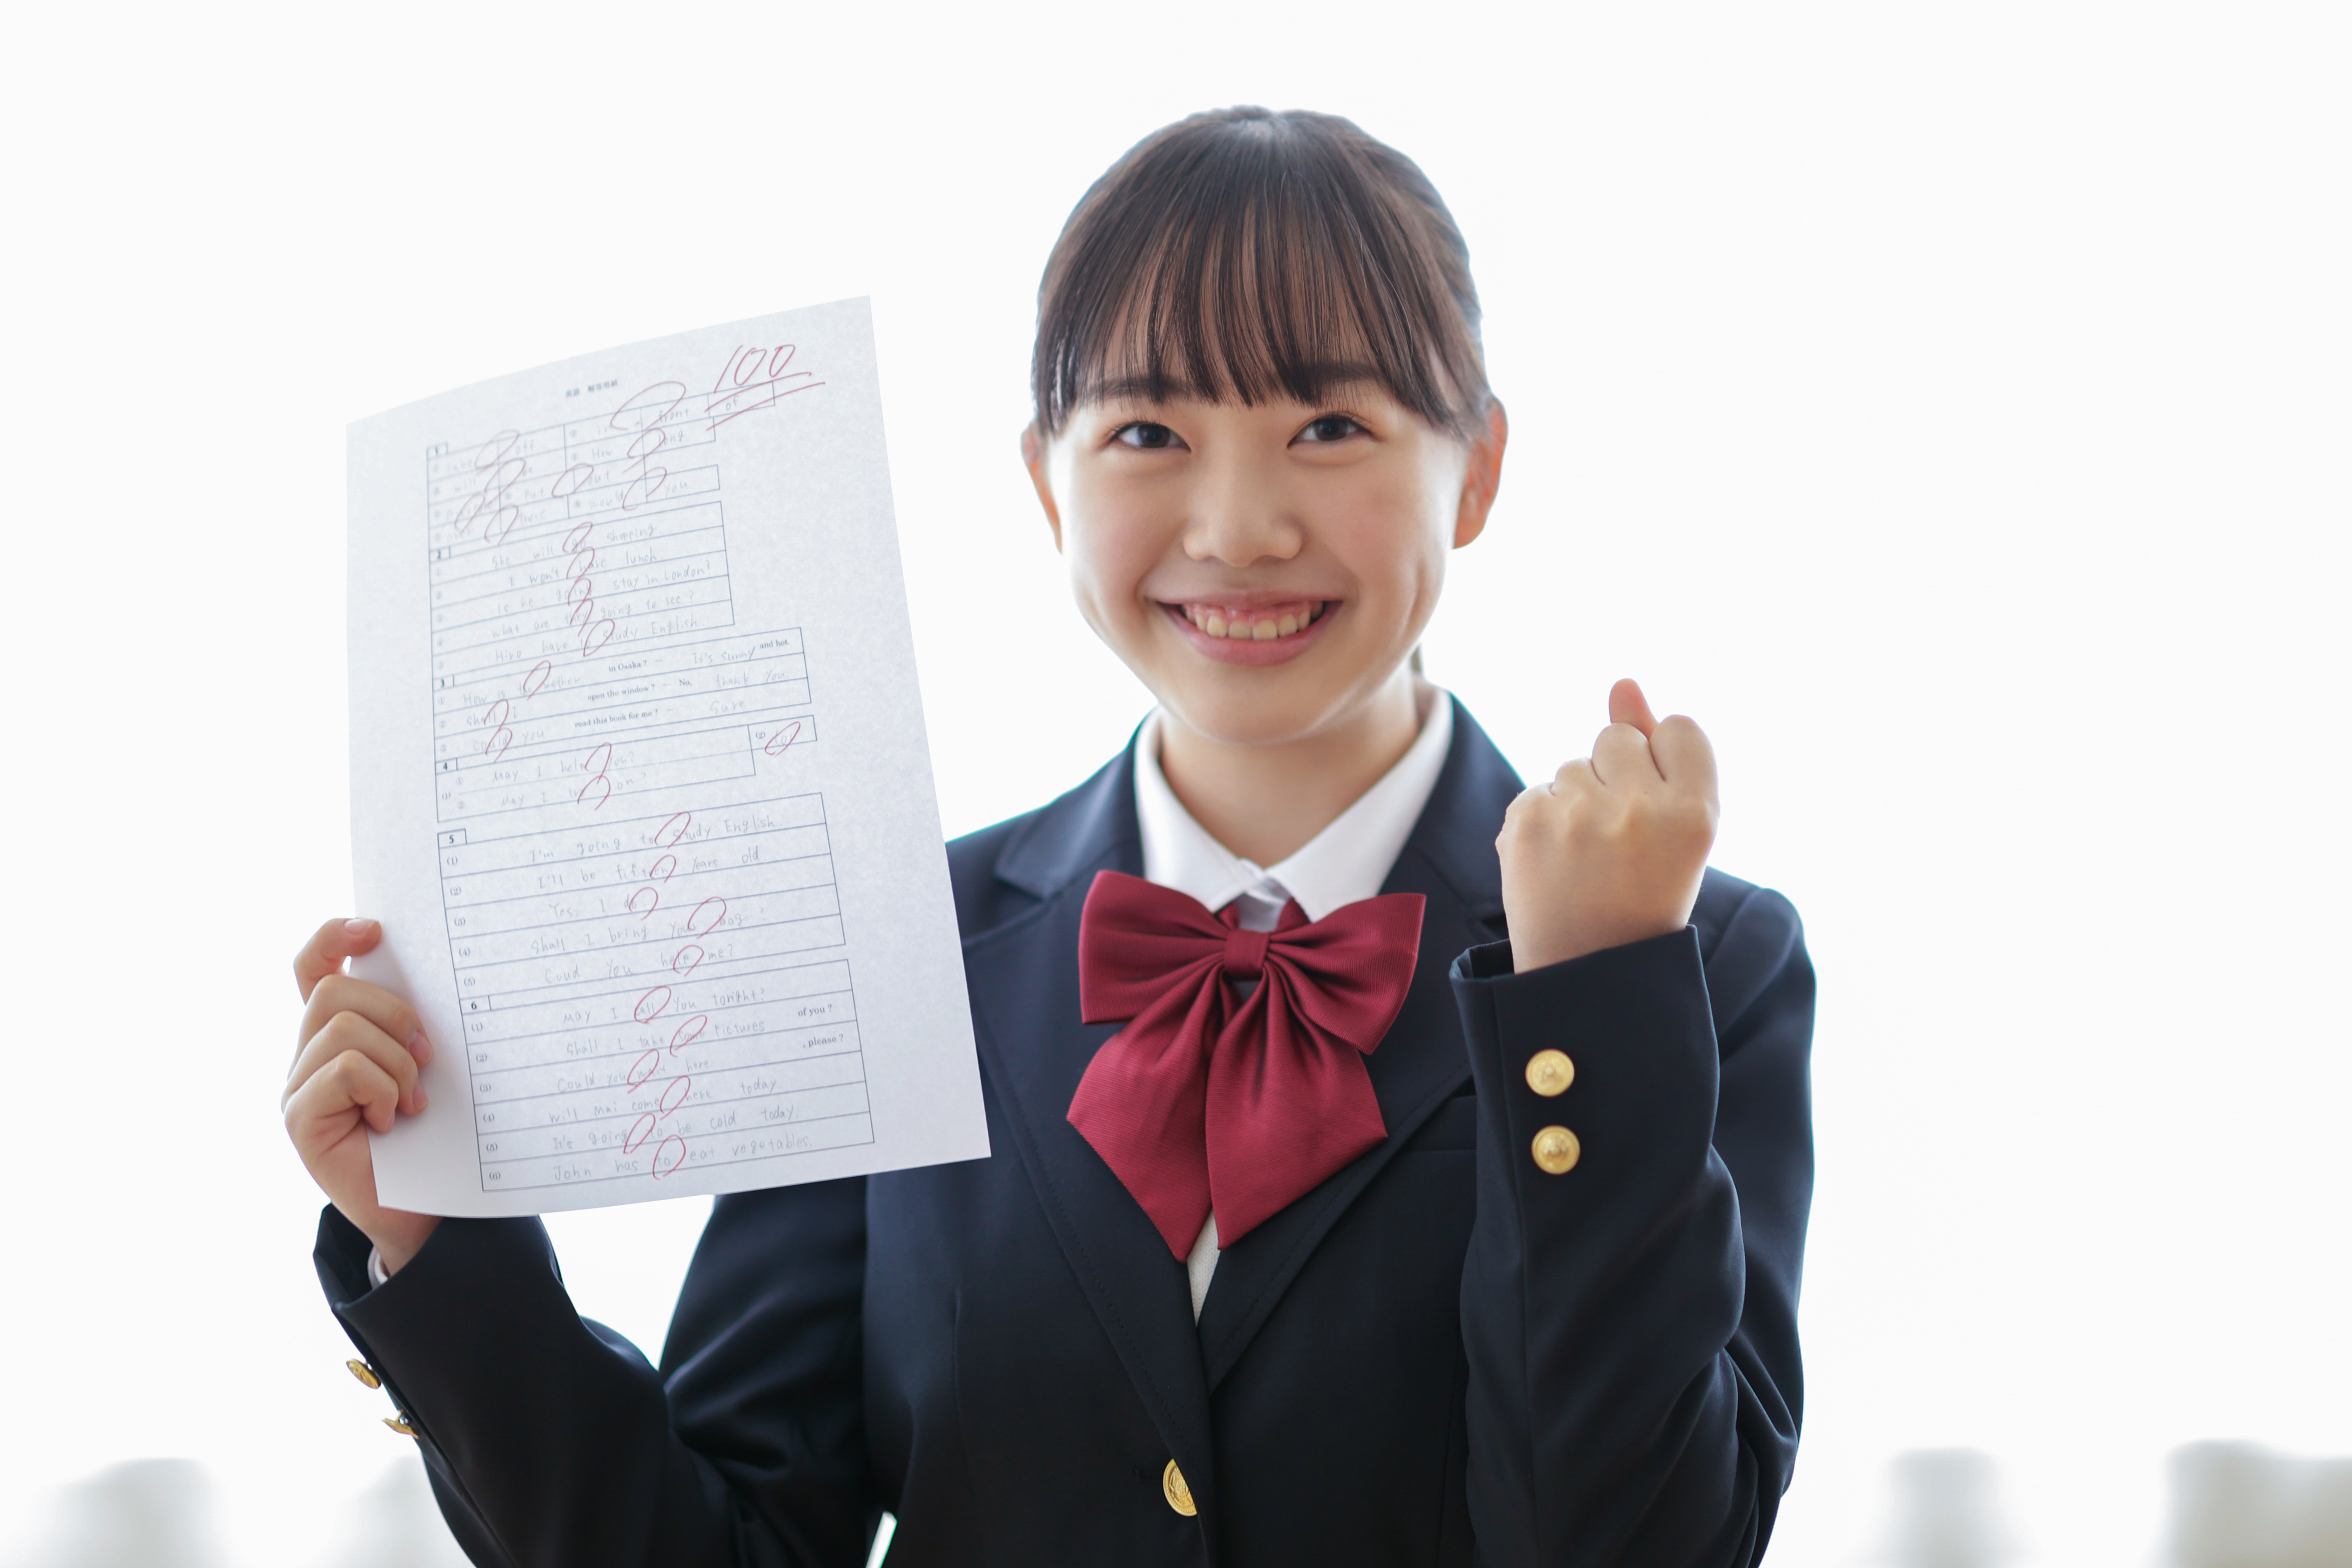 英語 解答用紙
100
1
take off ② in front of
will be ④ How long
put out ⑥ would you
over here
2
① She will go shopping
② I won't have lunch
③ Is he going stay in London?
④ what are they going to see?
⑤ Hiro have study English
3
① How is the wether in Osaka? — It's sunny and hot.
② Shall I open the window? — No, thank you.
③ could you read this book for me? — Sure
4
(1) ① May I help you? (2)
② May I on?
5
(1) I'm going to study English.
(2) I'll be fifteen years old
(3) Yes, I do
(4) Shall I bring your bag?
(5) Coud you help me?
6
(1) May I call you tonight?
(2) Shall I take some pictures of you?
(3) Could you wait here , please?
(4) will Mai come here today
(5) It's going to be cold today.
(6) John has to eat vegetables.